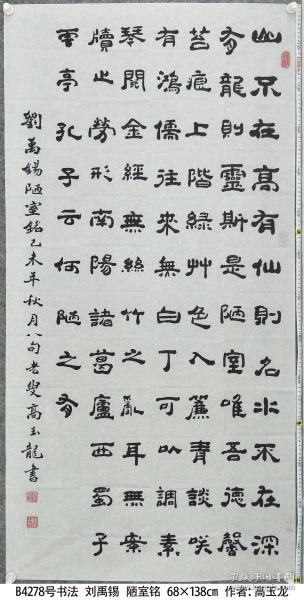 山不在高有仙則名水不在深
有龍則靈斯是陋室唯吾德馨
苔痕上階綠艸色入簾青談咲
有鴻儒往來無白丁可以調素
琴閱金經無絲竹之亂耳無案
牘之勞形南陽諸葛廬西蜀子
雲亭孔子云何陋之有
劉禹錫陋室銘乙未年秋月八旬老叟高玉龍書
B4278号书法 刘禹锡 陋室铭 68×138cm 作者:高玉龙